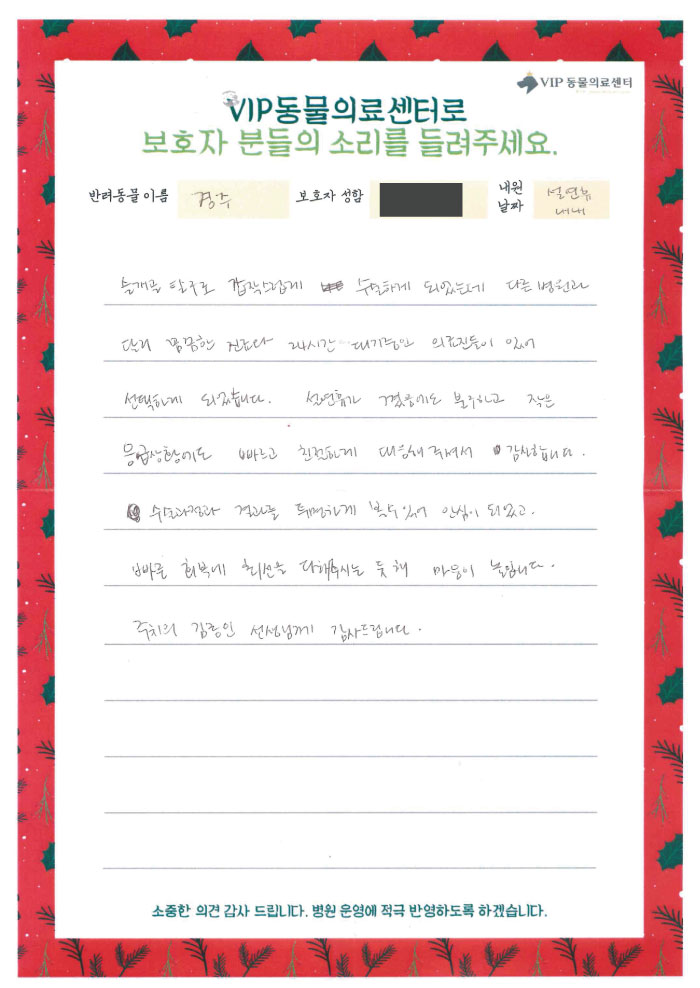 VIP 동물의료센터
VIP동물의료센터로
보호자 분들의 소리를 들려주세요.
반려동물 이름 경주 보호자 성함 내원 날짜 설연휴 내내
슬개골 탈구로 갑작스럽게 수술하게 되었는데 다른 병원과
달리 꼼꼼한 진료와 24시간 대기중인 의료진들이 있어
선택하게 되었습니다. 설연휴가 꼈음에도 불구하고 작은
응급상황에도 빠르고 친절하게 대응해 주셔서 감사합니다.
수술과정과 결과를 투명하게 볼 수 있어 안심이 되었고.
빠른 회복에 최선을 다해주시는 듯 해 마음이 놓입니다.
주치의 선생님께 감사드립니다.
소중한 의견 감사 드립니다. 병원 운영에 적극 반영하도록 하겠습니다.